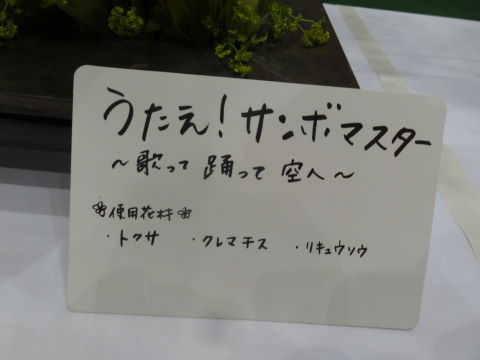 うたえ！サンボマスター
～歌って 踊って 空へ～
❀使用花材❀
・トクサ ・クレマチス ・リキュウソウ